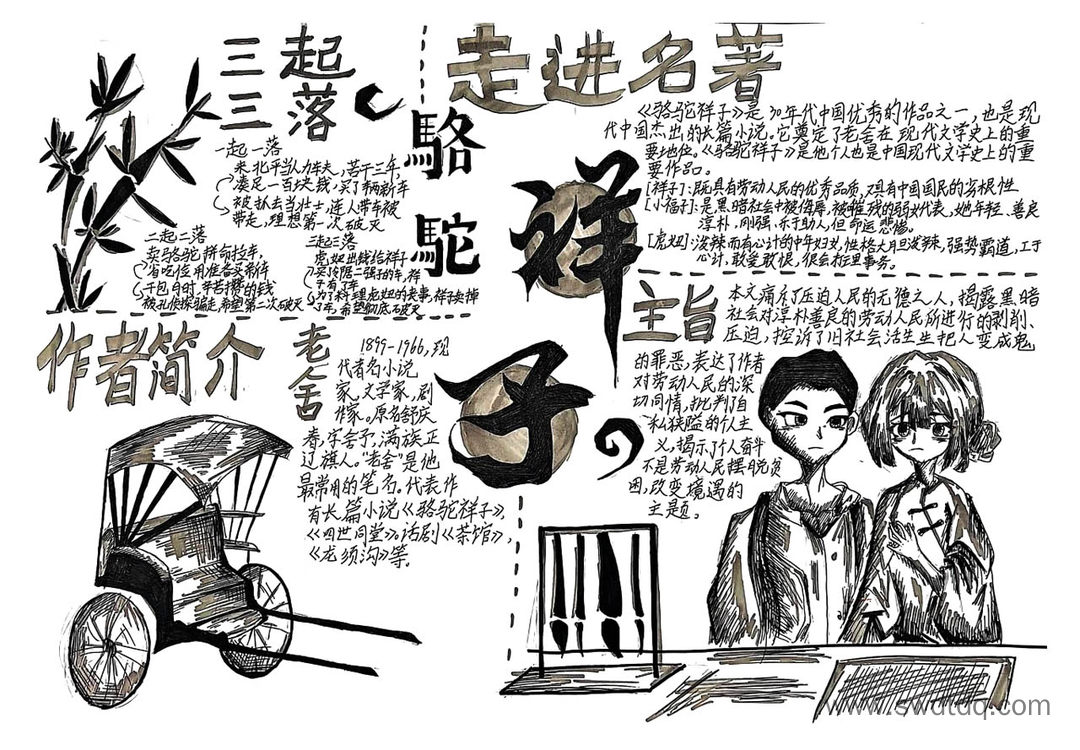 三起
三落
一起一落
来北平当人力车夫，苦干三年，
凑足一百块钱，买了辆新车
被抓去当壮士，连人带车被
带走，理想第一次破灭
二起二落
卖骆驼，拼命拉车，
省吃俭用准备买新车
干包月时，辛苦攒的钱
被孔侦探骗走，希望第二次破灭
三起三落
虎妞出钱给祥子
买
子有了车
为了料理虎妞的丧事，祥子卖掉
了车，希望彻底破灭
骆
駝
祥
子。
走进名著
《骆驼祥子》是30年代中国优秀的作品之一，也是现
代中国杰出的长篇小说。它奠定了老舍在现代文学史上的重
要地位。《骆驼祥子》是他个人也是中国现代文学史上的重
要作品。
[祥子]：既具有劳动人民的优秀品质，又具有中国国民的劣根性
[小福子]：是黑暗社会中被侮辱，被摧残的弱女代表，她年轻、善良
淳朴，刚强，乐于助人但命运悲惨。
[虎妞]：泼辣而有心计的中年妇女，性格大胆泼辣，强势霸道，工于
心计，敢爱敢恨，很会打理事务。
主旨
本文痛斥了压迫人民的无德之人，揭露黑暗
社会对淳朴善良的劳动人民所进行的剥削、
压迫，控诉了旧社会活生生把人变成鬼
的罪恶，表达了作者
对劳动人民的深
切同情，批判了自
私狭隘的个人主
义，揭示了个人奋斗
不是劳动人民摆脱贫
困，改变境遇的
主题。
作者简介
老舍
1899-1966，现
代著名小说
家、文学家，剧
作家。原名舒庆
春，字舍予，满族正
辽旗人。"老舍"是他
最常用的笔名。代表作
有长篇小说《骆驼祥子》，
《四世同堂》，话剧《茶馆》，
《龙须沟》等。
www.swdtdq.com